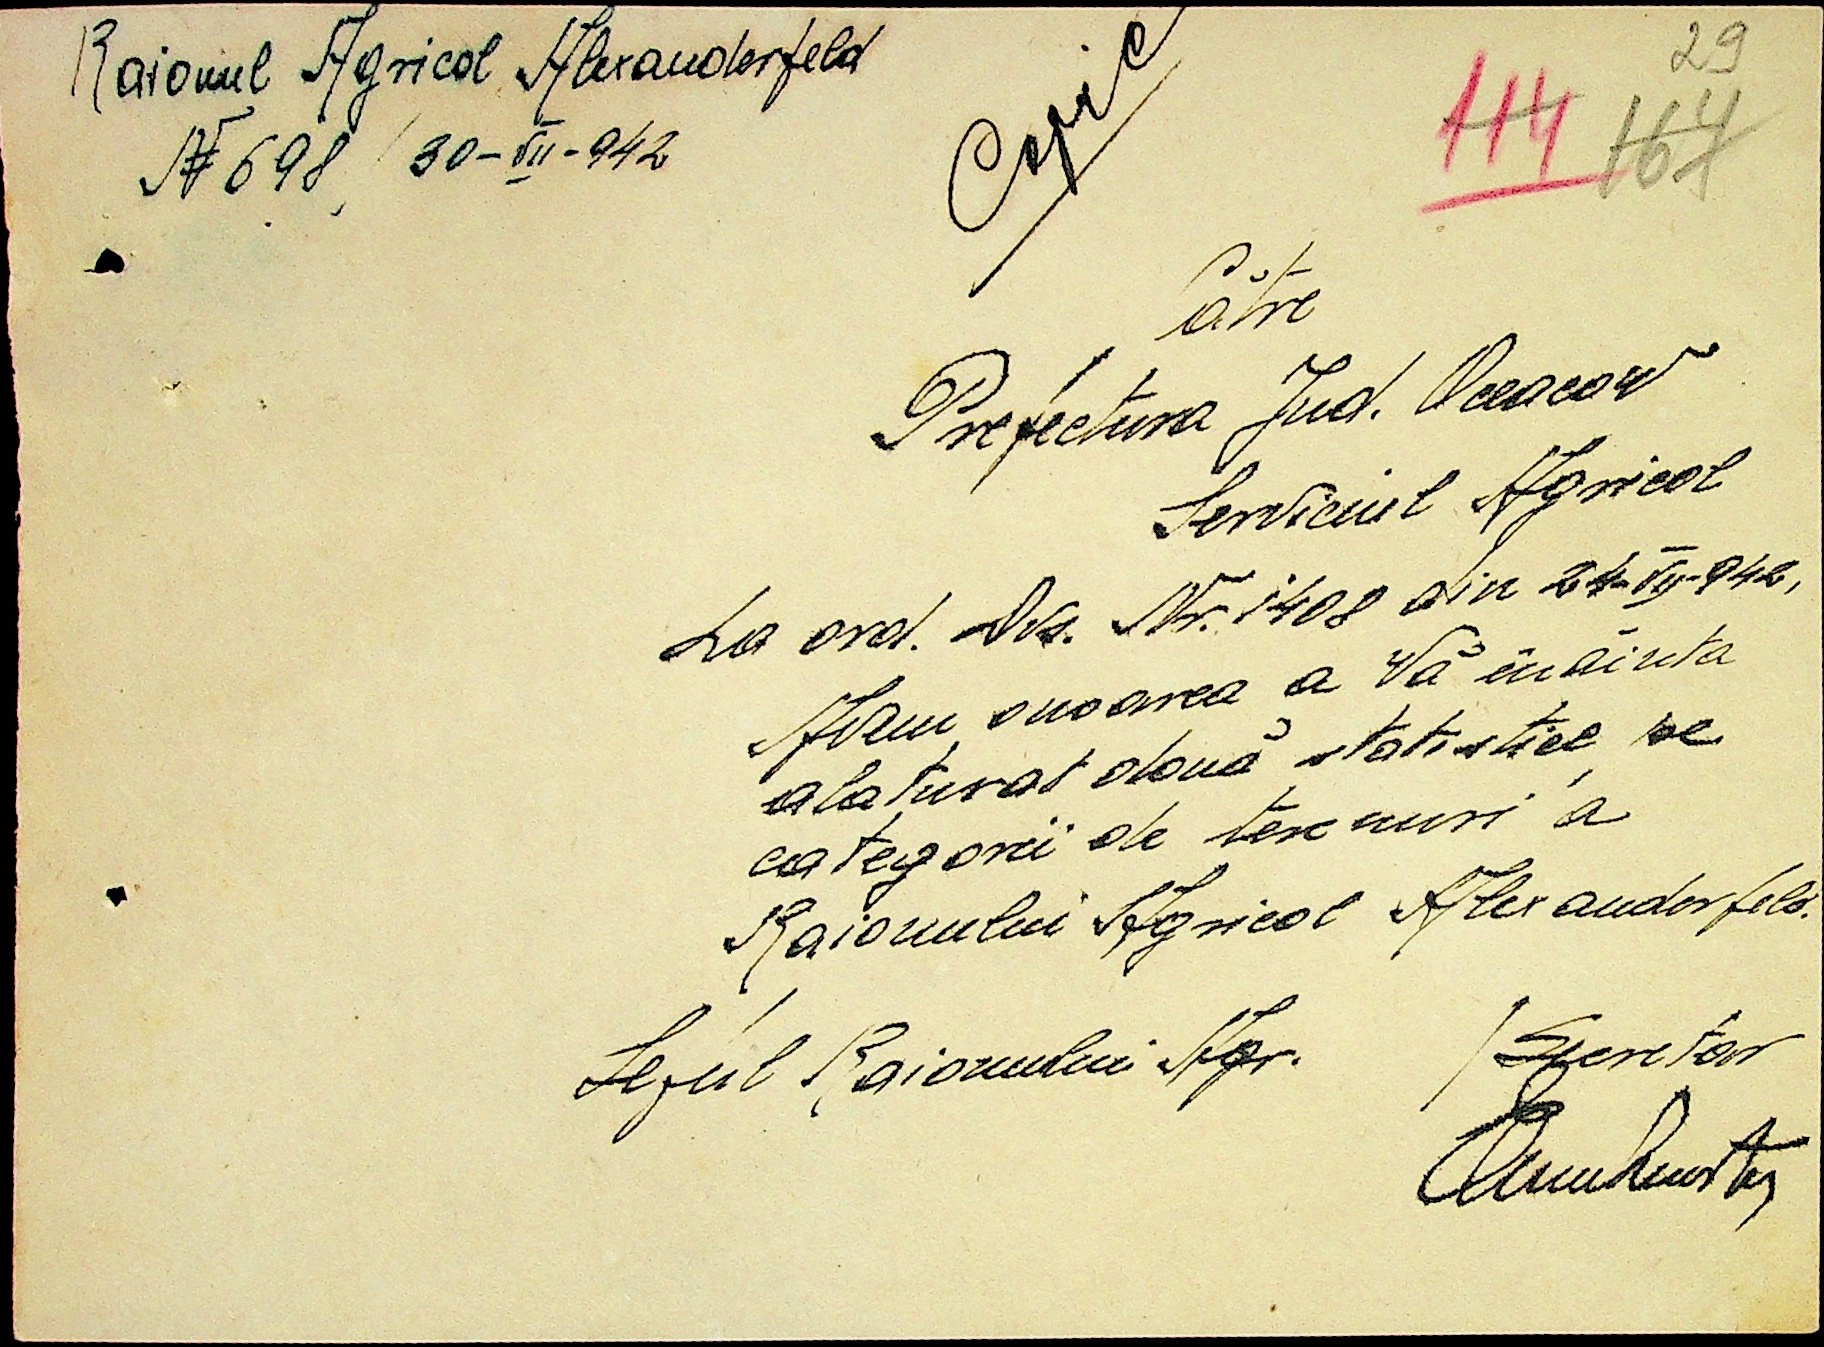 Raionul Agricol Alexanderfeld
№ 698 / 30-VII-942
Copie
29
114
114
167
Către
Prefectura Jud. Oceacov
Serviciul Agricol
La ord. Dvs. Nr. 1408 din 24-VII-942,
Avem onoarea a Vă înăinta
alaturat două statistice pe
categorii de terenuri a
Raionului Agricol Alexanderfeld.
Seful Raionului Agr.
Secretar